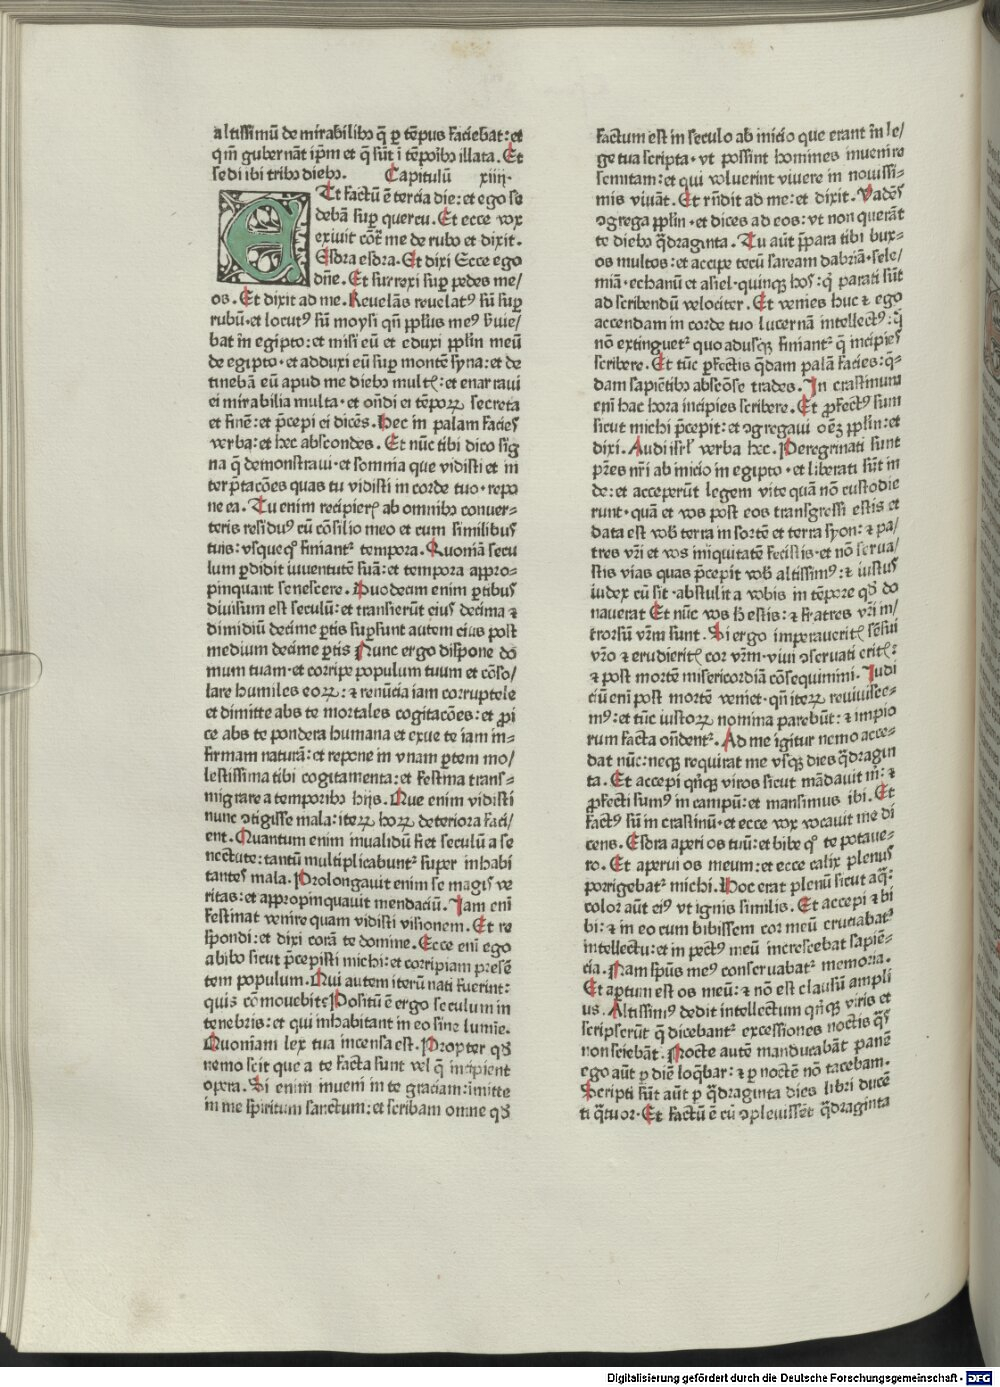 altissimū de mirabilibꝫ q̄ ꝑ tēpus faciebat: et
qm̄ gubernāt ip̄m et q̄ sūt ī tēpoībꝫ illata. Et
sedi ibi tribꝫ diebꝫ. Capitulū xiiii.
ET factū ē tercia die: et ego se
debā sup̱ quercu. Et ecce vox
exiuit cōt̄ me de rubo et dixit.
Esdra esdra. Et dixi Ecce ego
dn̄e. Et surrexi sup̱ pedes me/
os. Et dixit ad me. Reuelās reuelatꝰ sū sup̱
rubū. et locutꝰ sū moysi qn̄ pp̄lus meꝰ ẜuie/
bat in egipto: et misi eū et eduxi pp̄lm meū
de egipto. et adduxi eū sup̱ montē syna: et de
tinebā eū apud me diebꝫ multꝭ: et enarraui
ei mirabilia multa. et on̄di ei tēpoꝝ secreta
et finē: et p̄cepi ei dicēs. Hec in palam facies
verba: et hec abscondes. Et nūc tibi dico sig
na q̄ demonstraui. et somnia que vidisti et in
terp̄tacōes quas tu vidisti in corde tuo. repo
ne ea. Tu enim recipierꝭ ab omnibꝫ conuer⸗
teris residuꝰ cū cōsilio meo et cum similibus
tuis: vsque qꝰ finiantᷣ tempora. Quoniā secu
lum ꝑdidit iuuentutē suā: et tempora appro⸗
pinquant senescere. Duodecim enim ꝑtibus
diuisum est seculū: et transierūt eius decima ⁊
dimidiū decime ꝑtis suꝑsunt autem eius post
medium decime ꝑtis Nunc ergo dispone do
mum tuam. et corripe populum tuum et cōso/
lare humiles eoꝝ: ⁊ renūcia iam corruptele
et dimitte abs te mortales cogitacōes: et ꝓi
ce abs te pondera humana et exue te iam in⸗
firmam naturā: et repone in vnam ꝑtem mo/
lestissima tibi cogitamenta: et festina trans⸗
migrare a temporibꝫ hijs. Que enim vidisti
nunc ꝯtigisse mala: iteꝝ hoꝝ deteriora faci/
ent. Quantum enim inualidū fiet seculū a se
nectute: tantū multiplicabuntᷣ super inhabi
tantes mala. Prolongauit enim se magis ve
ritas: et appropinquauit mendaciū. Jam eni
festinat venire quam vidisti visionem. Et re
spondi: et dixi corā te domine. Ecce eni ego
abibo sicut p̄cepisti michi: et corripiam presē
tem populum. Qui autem iterū nati fuerint:
quis cōmouebit? Positū ē ergo seculum in
tenebris: et qui inhabitant in eo sine lumīe.
Quoniam lex tua incensa est. Propter qd̄
nemo scit que a te facta sunt vel q̄ incipient
opera. Si enim inueni in te graciam: imitte
in me spiritum sanctum: et scribam omne qd̄
factum est in seculo ab inicio que erant in le/
ge tua scripta. vt possint homines inuenire
semitam: et qui voluerint viuere in nouissi⸗
mis viuāt. Et rn̄dit ad me: et dixit. Vadēs
ꝯgrega pp̄lm. et dices ad eos: vt non querāt
te diebꝫ q̄draginta. Tu aūt p̄para tibi bux⸗
os multos: et accipe tecū saream dabriā. sele/
miā. echanū et asiel. quinqꝫ hos: qꝛ parati sūt
ad scribendū velociter. Et venies huc ⁊ ego
accendam in corde tuo lucernā intellectꝰ: q̄
nō extinguetᷣ quoadusqꝫ finiantᷣ q̄ incipies
scribere. Et tūc ꝑfectis q̄dam palā facies: q̄⸗
dam sapiētibꝫ abscōse trades. In crastinum
eni hac hora incipies scribere. Et ꝓfectꝰ sum
sicut michi p̄cepit: et ꝯgregaui oēꝫ pp̄lm: et
dixi. Audi isrl̄ verba hec. Peregrinati sunt
pr̄es nr̄i ab inicio in egipto. et liberati sūt in
de: et acceperūt legem vite quā nō custodie
runt. quā et vos post eos transgressi estis et
data est vob̄ terra in sortē et terra syon: ⁊ pa/
tres vr̄i et vos iniquitatē fecistis. et nō serua/
stis vias quas p̄cepit vob̄ altissimꝰ: ⁊ iustus
iudex cū sit. abstulit a vobis in tēpore qd̄ do
nauerat Et nūc vos h̄ estis: ⁊ fratres vr̄i in/
trorsū vr̄m sunt. Si ergo imperaueritꝭ sēsui
vr̄o ⁊ erudieritꝭ cor vr̄m. viui ꝯseruati eritꝭ:
⁊ post mortē misericordiā cōsequimini. Judi
ciū eni post mortē veniet. qn̄ iteꝝ reuiuisce⸗
mꝰ: et tūc iustoꝝ nomina parebūt: ⁊ impio
rum facta on̄dentᷣ. Ad me igitur nemo acce⸗
dat nūc: neqꝫ requirat me vsqꝫ dies q̄dragin
ta. Et accepi qn̄qꝫ viros sicut mādauit m̄: ⁊
ꝓfecti sumꝰ in campū: et mansimus ibi. Et
factꝰ sū in crastinū. et ecce vox vocauit me di
cens. Esdra aperi os tuū: et bibe qꝰ te potaue⸗
ro. Et aperui os meum: et ecce calix plenus
porrigebatᷣ michi. Hoc erat plenū sicut aq̄:
color aūt eiꝰ vt ignis similis. Et accepi ⁊ bi
bi: ⁊ in eo cum bibissem cor meū cruciabatᷣ
intellectu: et in pectꝰ meū increscebat sapiē⸗
cia. Nam sp̄us meꝰ conseruabatᷣ memoria.
Et aꝑtum est os meū: ⁊ nō est clausū ampli
us. Altissimꝰ dedit intellectum qn̄qꝫ viris et
scripserūt q̄ dicebantᷣ excessiones noctis q̄s
non sciebāt. Nocte autē manducabāt panē
ego aūt ꝑ diē loq̄bar: ⁊ ꝑ noctē nō tacebam.
Scripti sūt aūt ꝑ q̄draginta dies libri ducē
ti q̄tuor. Et factū ē cū ꝯpleuissēt q̄draginta
Digitalisierung gefördert durch die Deutsche Forschungsgemeinschaft - DFG